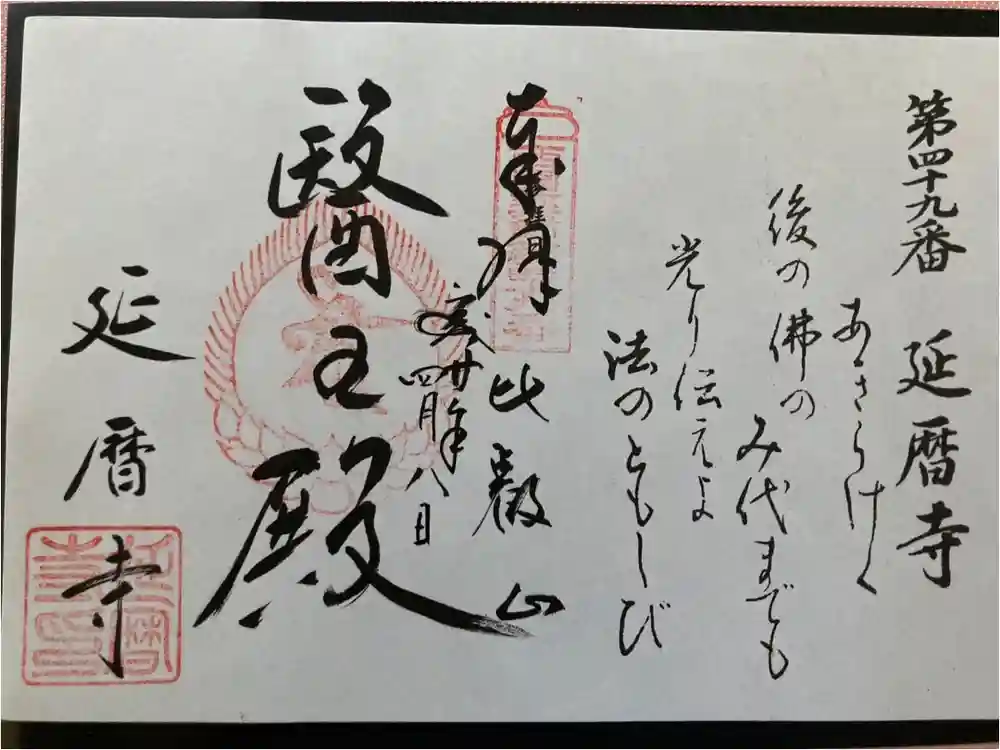 第四十九番　延暦寺
あきらけく
後の佛の
み代までも
光り伝えよ
法のともしび
奉拝
比叡山
平成廿年
四月八日
醫王殿
延暦寺